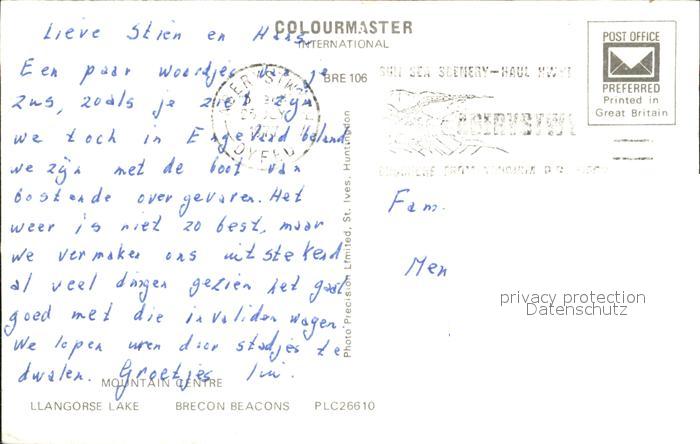 COLOURMASTER
INTERNATIONAL
BRE 106
POST OFFICE
PREFERRED
Printed in
Great Britain
Lieve Stien en Hans,
Een paar woordjes van je
zus, zoals je ziet zijn
we toch in Engeland beland
we zijn met de boot van
oostende overgevaren. Het
weer is niet zo best, maar
we vermaken ons uitstekend
al veel dingen gezien het gaat
goed met die invaliden wagen
We lopen uren door stadjes te
dwalen. Groetjes
Fam.
Men
privacy protection
Datenschutz
Photo Precision Limited, St. Ives, Huntingdon
MOUNTAIN CENTRE
LLANGORSE LAKE BRECON BEACONS PLC26610